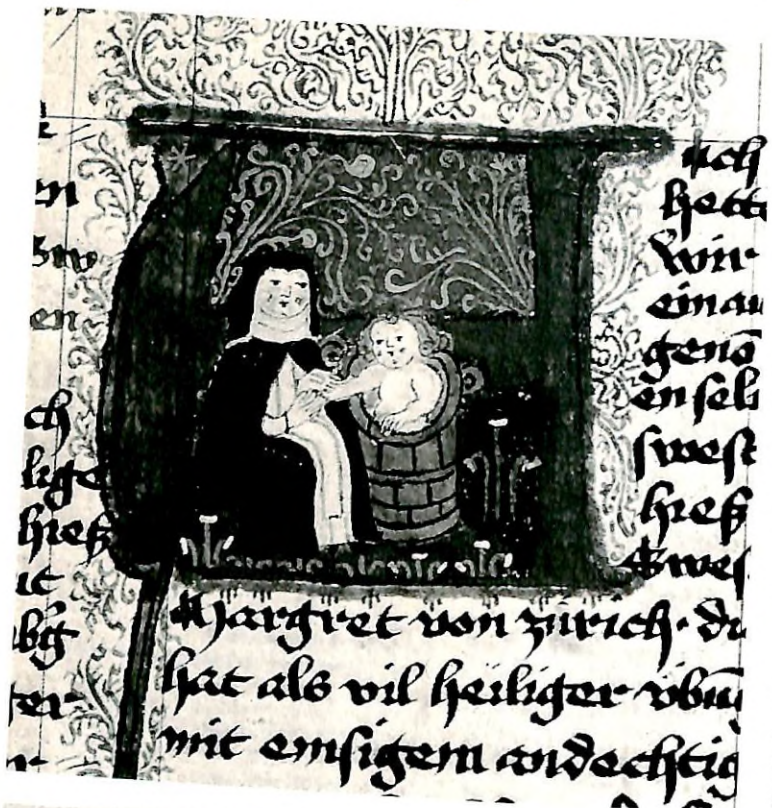 en
en
ch
lige
hieß
it
ter
Auch
hett
wir
ein au
genō
en seli
swest
hieß
Swes
Margret von zürich · di
hat als vil heiliger v̈būg
mit emsigem andechtig